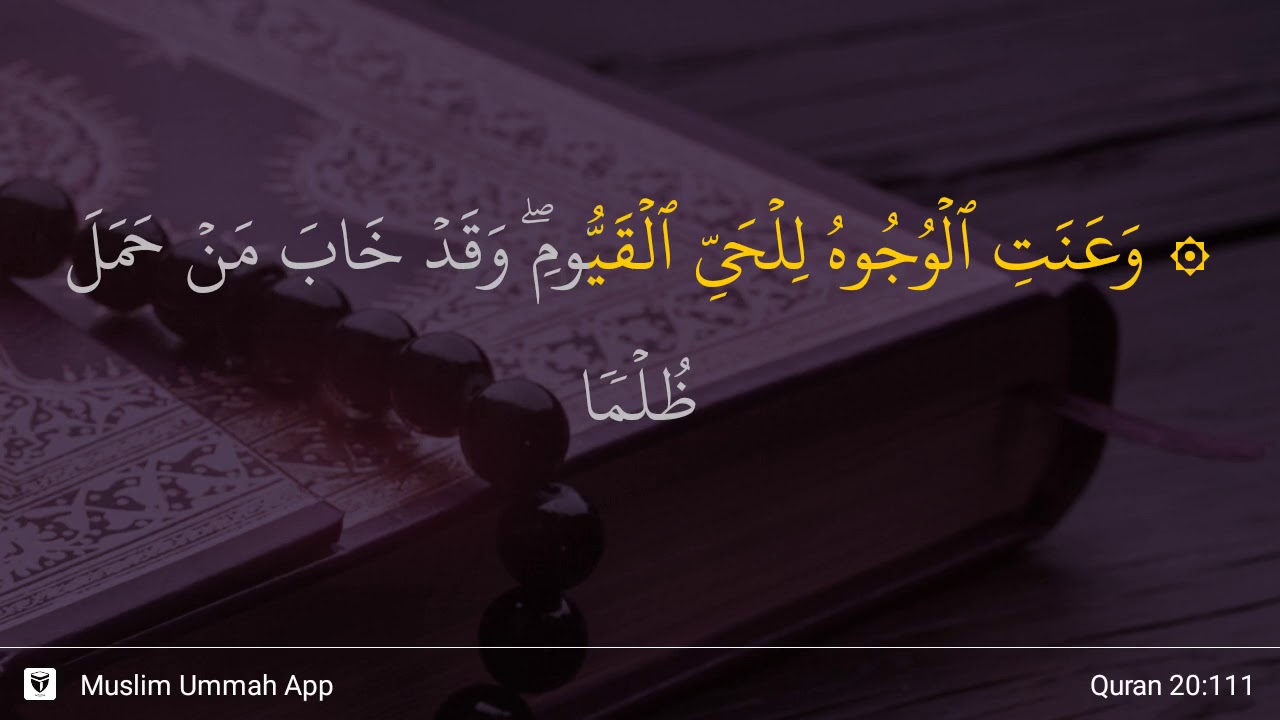 ۞ وَعَنَتِ ٱلْوُجُوهُ لِلْحَىِّ ٱلْقَيُّومِ ۖ وَقَدْ خَابَ مَنْ حَمَلَ
ظُلْمًا
Muslim Ummah App
Quran 20:111